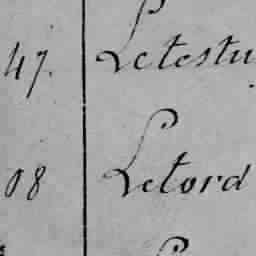 47. Letestu
08 Letord